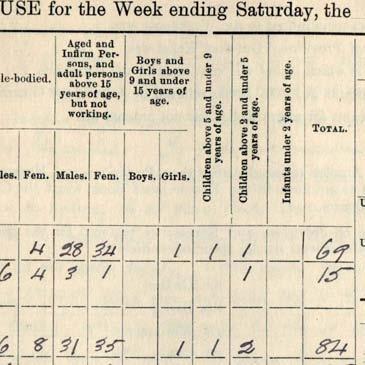 USE for the Week ending Saturday, the
le-bodied.
Aged and
Infirm Per-
sons, and
adult persons
above 15
years of age,
but not
working.
Boys and
Girls above
9 and under
15 years of
age.
Children above 5 and under 9
years of age.
Children above 2 and under 5
years of age.
Infants under 2 years of age.
TOTAL.
les. Fem. Males. Fem. Boys. Girls.
4 28 34 1 1 1 69
6 4 3 1 1 15
6 8 31 35 1 1 2 84